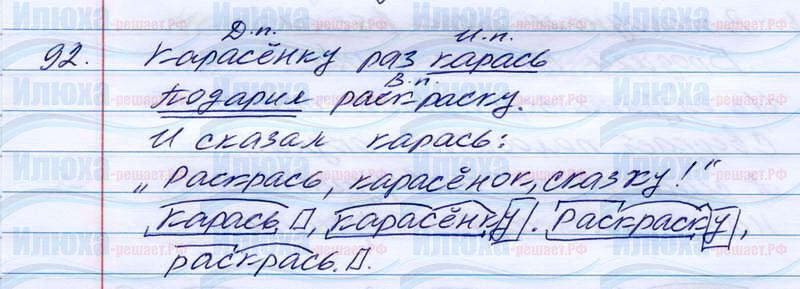 Д.п. И.п.
92. Карасёнку раз карась
В.п.
Подарил раскраску.
И сказал карась:
„Раскрась, карасёнок, сказку!“
Карась, карасёнку. Раскраску,
раскрась.